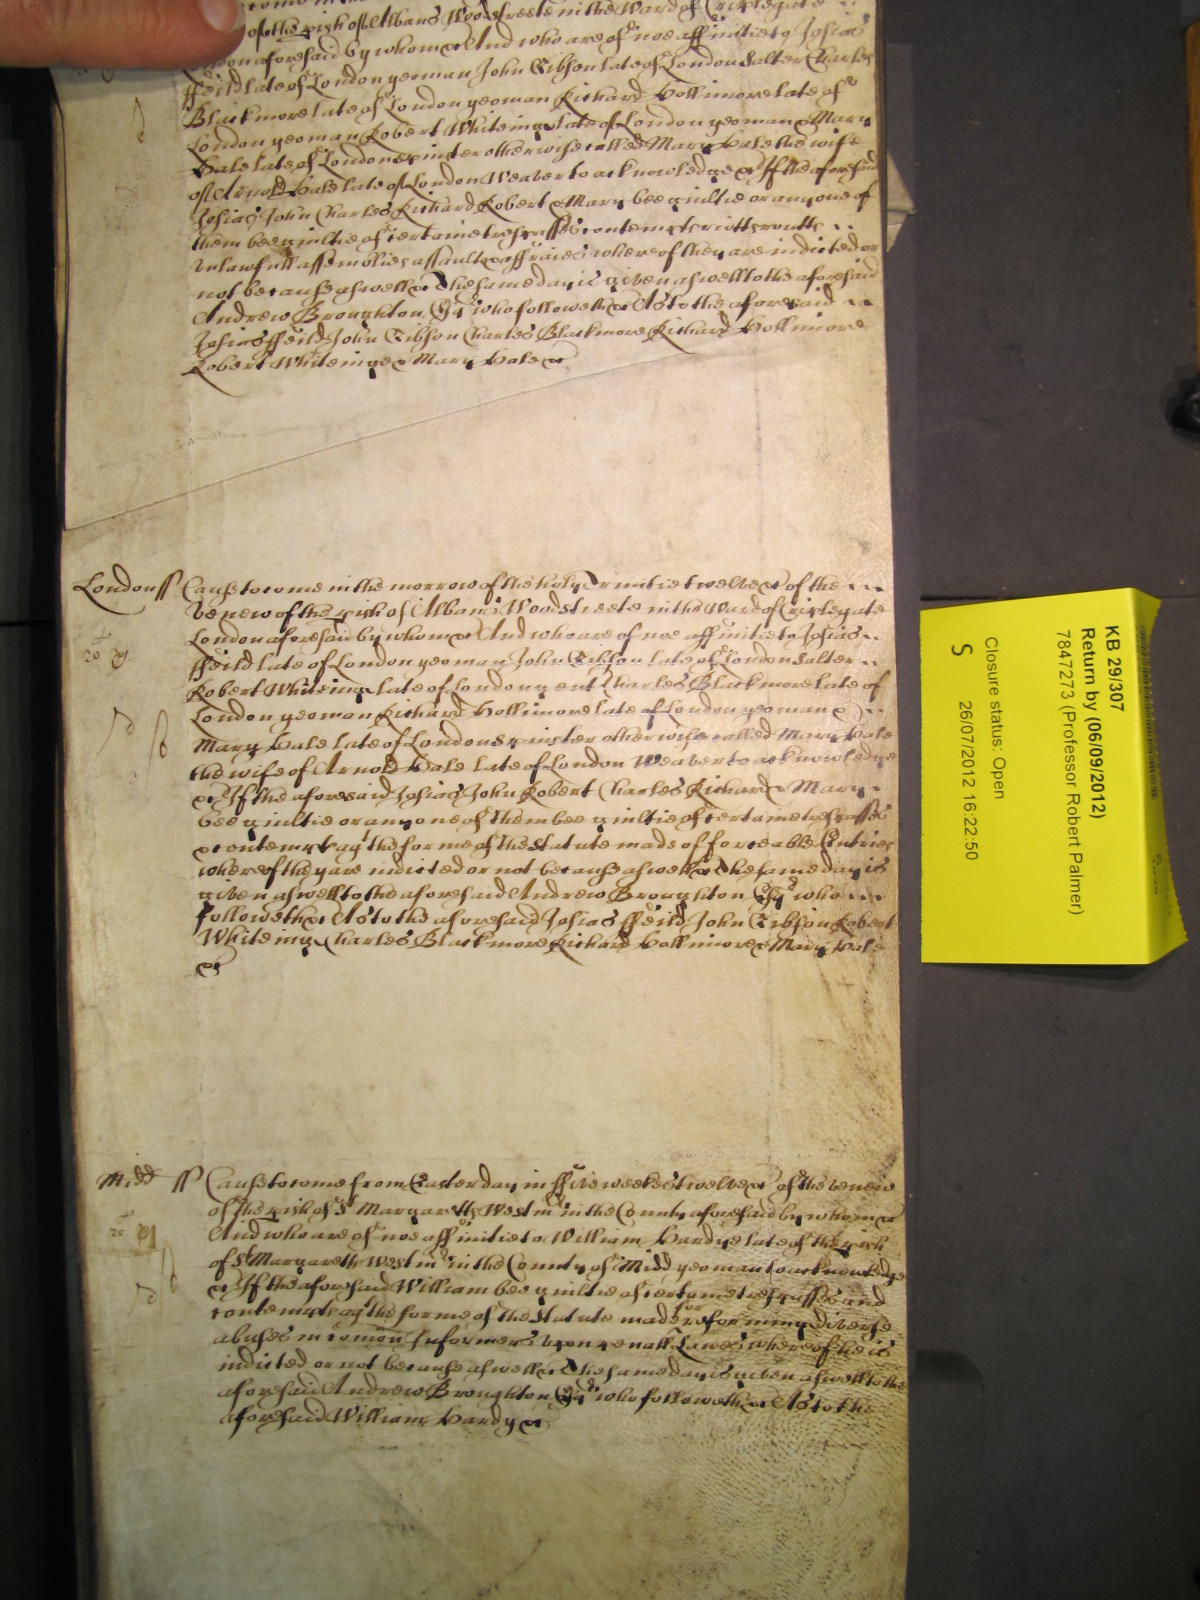 of the pish of Albans Woodstreete in the Ward of Criplegate
London aforesaid by whom &c And who are of noe affinitie to Josias
ffeild late of London yeoman John Gibson late of London Salter Charles
Blackmore late of London yeoman Richard Hollimore late of
London yeoman Robert Whiteing late of London yeoman & Mary
Hale late of London spinster otherwise called Mary Hale the wife
of Arnold Hale late of London Weaver to acknowledge &c If the aforesaid
Josias John Charles Richard Robert & Mary bee guiltie or any one of
them bee guiltie of certaine trespasses contempts riotts routts
unlawfull assemblies assaults & affraies whereof they are indicted or
not because aswell &c The same day is given aswell to the aforesaid
Andrew Broughton Esqr who followeth &c As to the aforesaid
Josias ffeild John Gibson Charles Blackmore Richard Hollimore
Robert Whiteinge & Mary Hale &c
London ss Cause to come in the morrow of the holy Trinitie twelve &c of the
venew of the pish of Albans Woodstreete in the Ward of Criplegate
London aforesaid by whom &c And who are of noe affinitie to Josias
ffeild late of London yeoman John Gibson late of London Salter
Robert Whiteing late of London gent Charles Blackmore late of
London yeoman Richard Hollimore late of London yeoman &
Mary Hale late of London spinster otherwise called Mary Hale
the wife of Arnold Hale late of London Weaver to acknowledge
&c If the aforesaid Josias John Robert Charles Richard & Mary
bee guiltie or any one of them bee guiltie of certaine trespasses
& contempts agt the forme of the Statute made of forceable Entries
whereof they are indicted or not because aswell &c The same day is
given aswell to the aforesaid Andrew Broughton Esqr who
followeth &c As to the aforesaid Josias ffeild John Gibson Robert
Whiteing Charles Blackmore Richard Hollimore & Mary Hale
&c
Midd ss Cause to come from Easter day in ffive weekes twelve &c of the venew
of the pish of St Margaretts Westmr in the County aforesaid by whom &c
And who are of noe affinitie to William Hardye late of the pish
of St Margaretts Westmr in the County of Midd yeoman to acknowledge
&c If the aforesaid William bee guiltie of certaine trespasses and
contempts agt the forme of the Statute made for reforming diverse
abuses in comon Informers upon penall Lawes whereof he is
indicted or not because aswell &c The same day is given aswell to the
aforesaid Andrew Broughton Esqr who followeth &c As to the
aforesaid William Hardy &c
KB 29/307
Return by (06/09/2012)
7847273 (Professor Robert Palmer)
Closure status: Open
26/07/2012 16:22:50
S